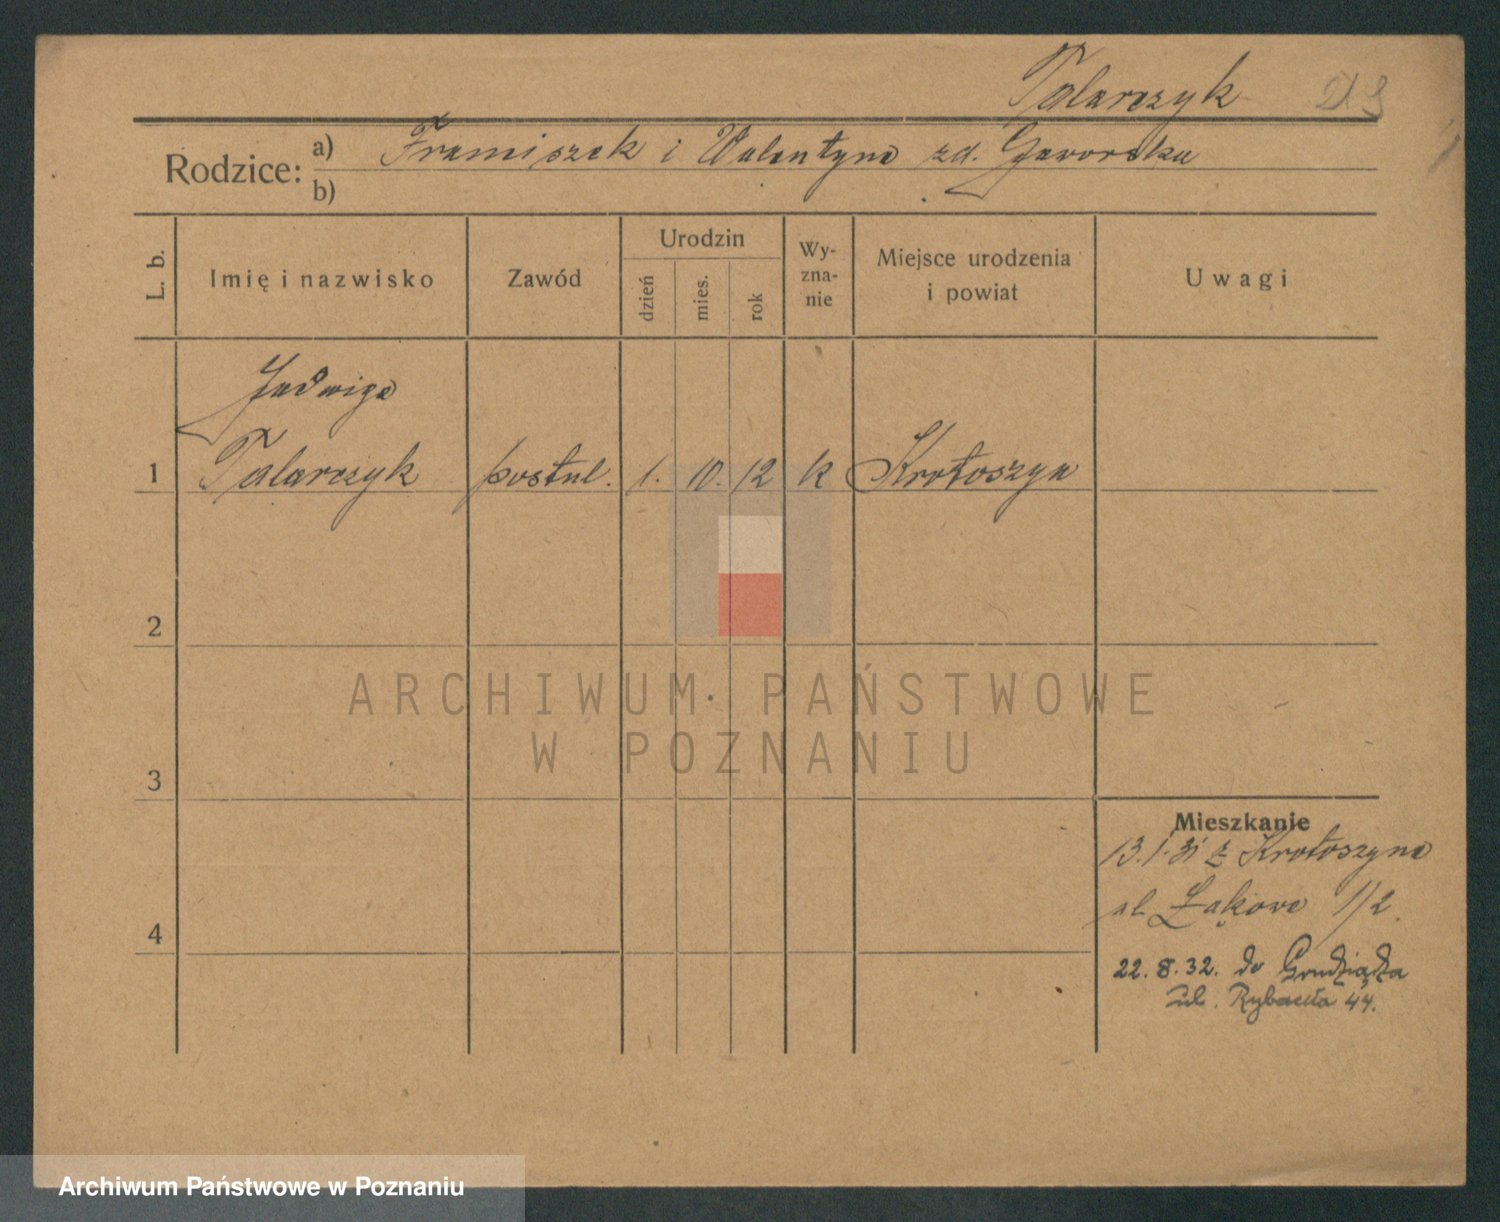 Talarczyk 213
Rodzice: a) Franciszek i Walentyna zd. Gaworska
b)
L. b. Imię i nazwisko Zawód Urodzin dzień mies. rok Wyznanie Miejsce urodzenia i powiat Uwagi
Jadwiga
1 Talarczyk postul. 1. 10. 12 k Krotoszyn
2
ARCHIWUM PAŃSTWOWE
W POZNANIU
3
Mieszkanie
13.1.31 z Krotoszyna
ul. Łąkowa 1/2
4
22.8.32. do Grudziądza
ul. Rybacka 44.
Archiwum Państwowe w Poznaniu